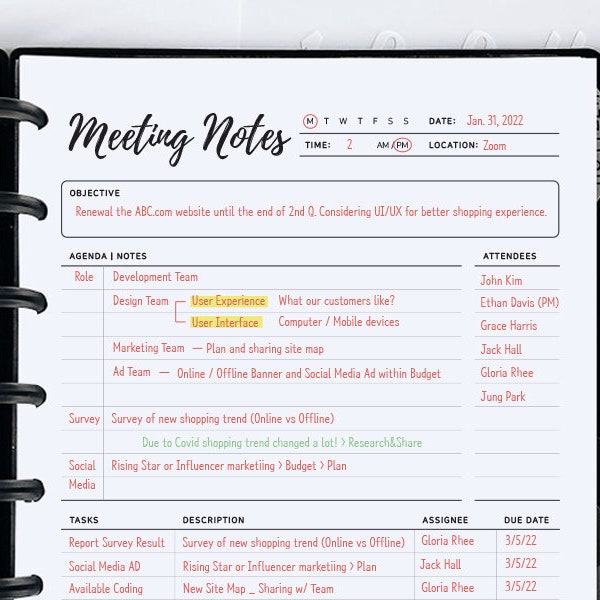 Meeting Notes
M T W T F S S DATE: Jan. 31, 2022
TIME: 2 AM/PM LOCATION: Zoom
OBJECTIVE
Renewal the ABC.com website until the end of 2nd Q. Considering UI/UX for better shopping experience.
AGENDA | NOTES
Role Development Team
Design Team User Experience What our customers like?
User Interface Computer / Mobile devices
Marketing Team — Plan and sharing site map
Ad Team — Online / Offline Banner and Social Media Ad within Budget
Survey Survey of new shopping trend (Online vs Offline)
Due to Covid shopping trend changed a lot! > Research&Share
Social Media Rising Star or Influencer marketiing > Budget > Plan
ATTENDEES
John Kim
Ethan Davis (PM)
Grace Harris
Jack Hall
Gloria Rhee
Jung Park
TASKS DESCRIPTION ASSIGNEE DUE DATE
Report Survey Result Survey of new shopping trend (Online vs Offline) Gloria Rhee 3/5/22
Social Media AD Rising Star or Influencer marketiing > Plan Jack Hall 3/5/22
Available Coding New Site Map _ Sharing w/ Team Gloria Rhee 3/5/22